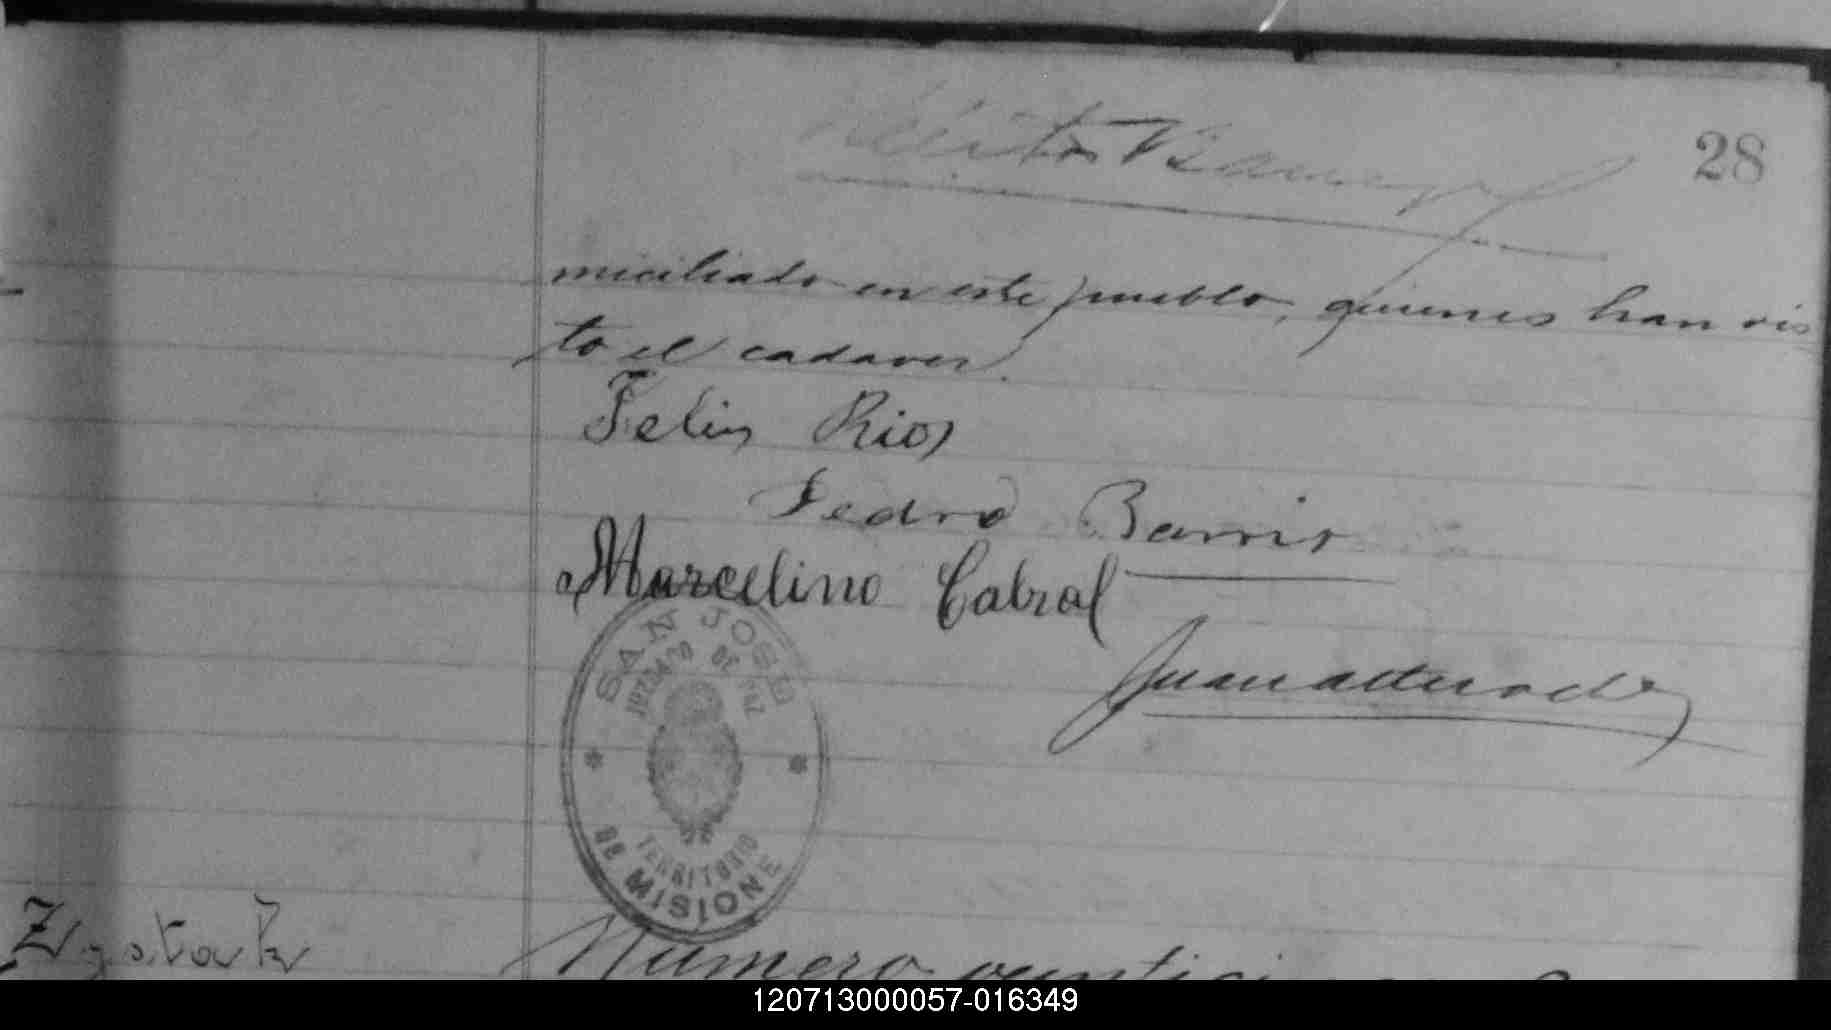 28
miciliado en este pueblo, quienes han vis
to el cadaver.
Felix Rios
Pedro Barrios
Marcelino Cabral
SAN JOSE
JUZGADO DE PAZ
TERRITORIO
DE MISIONE
Numero
120713000057-016349